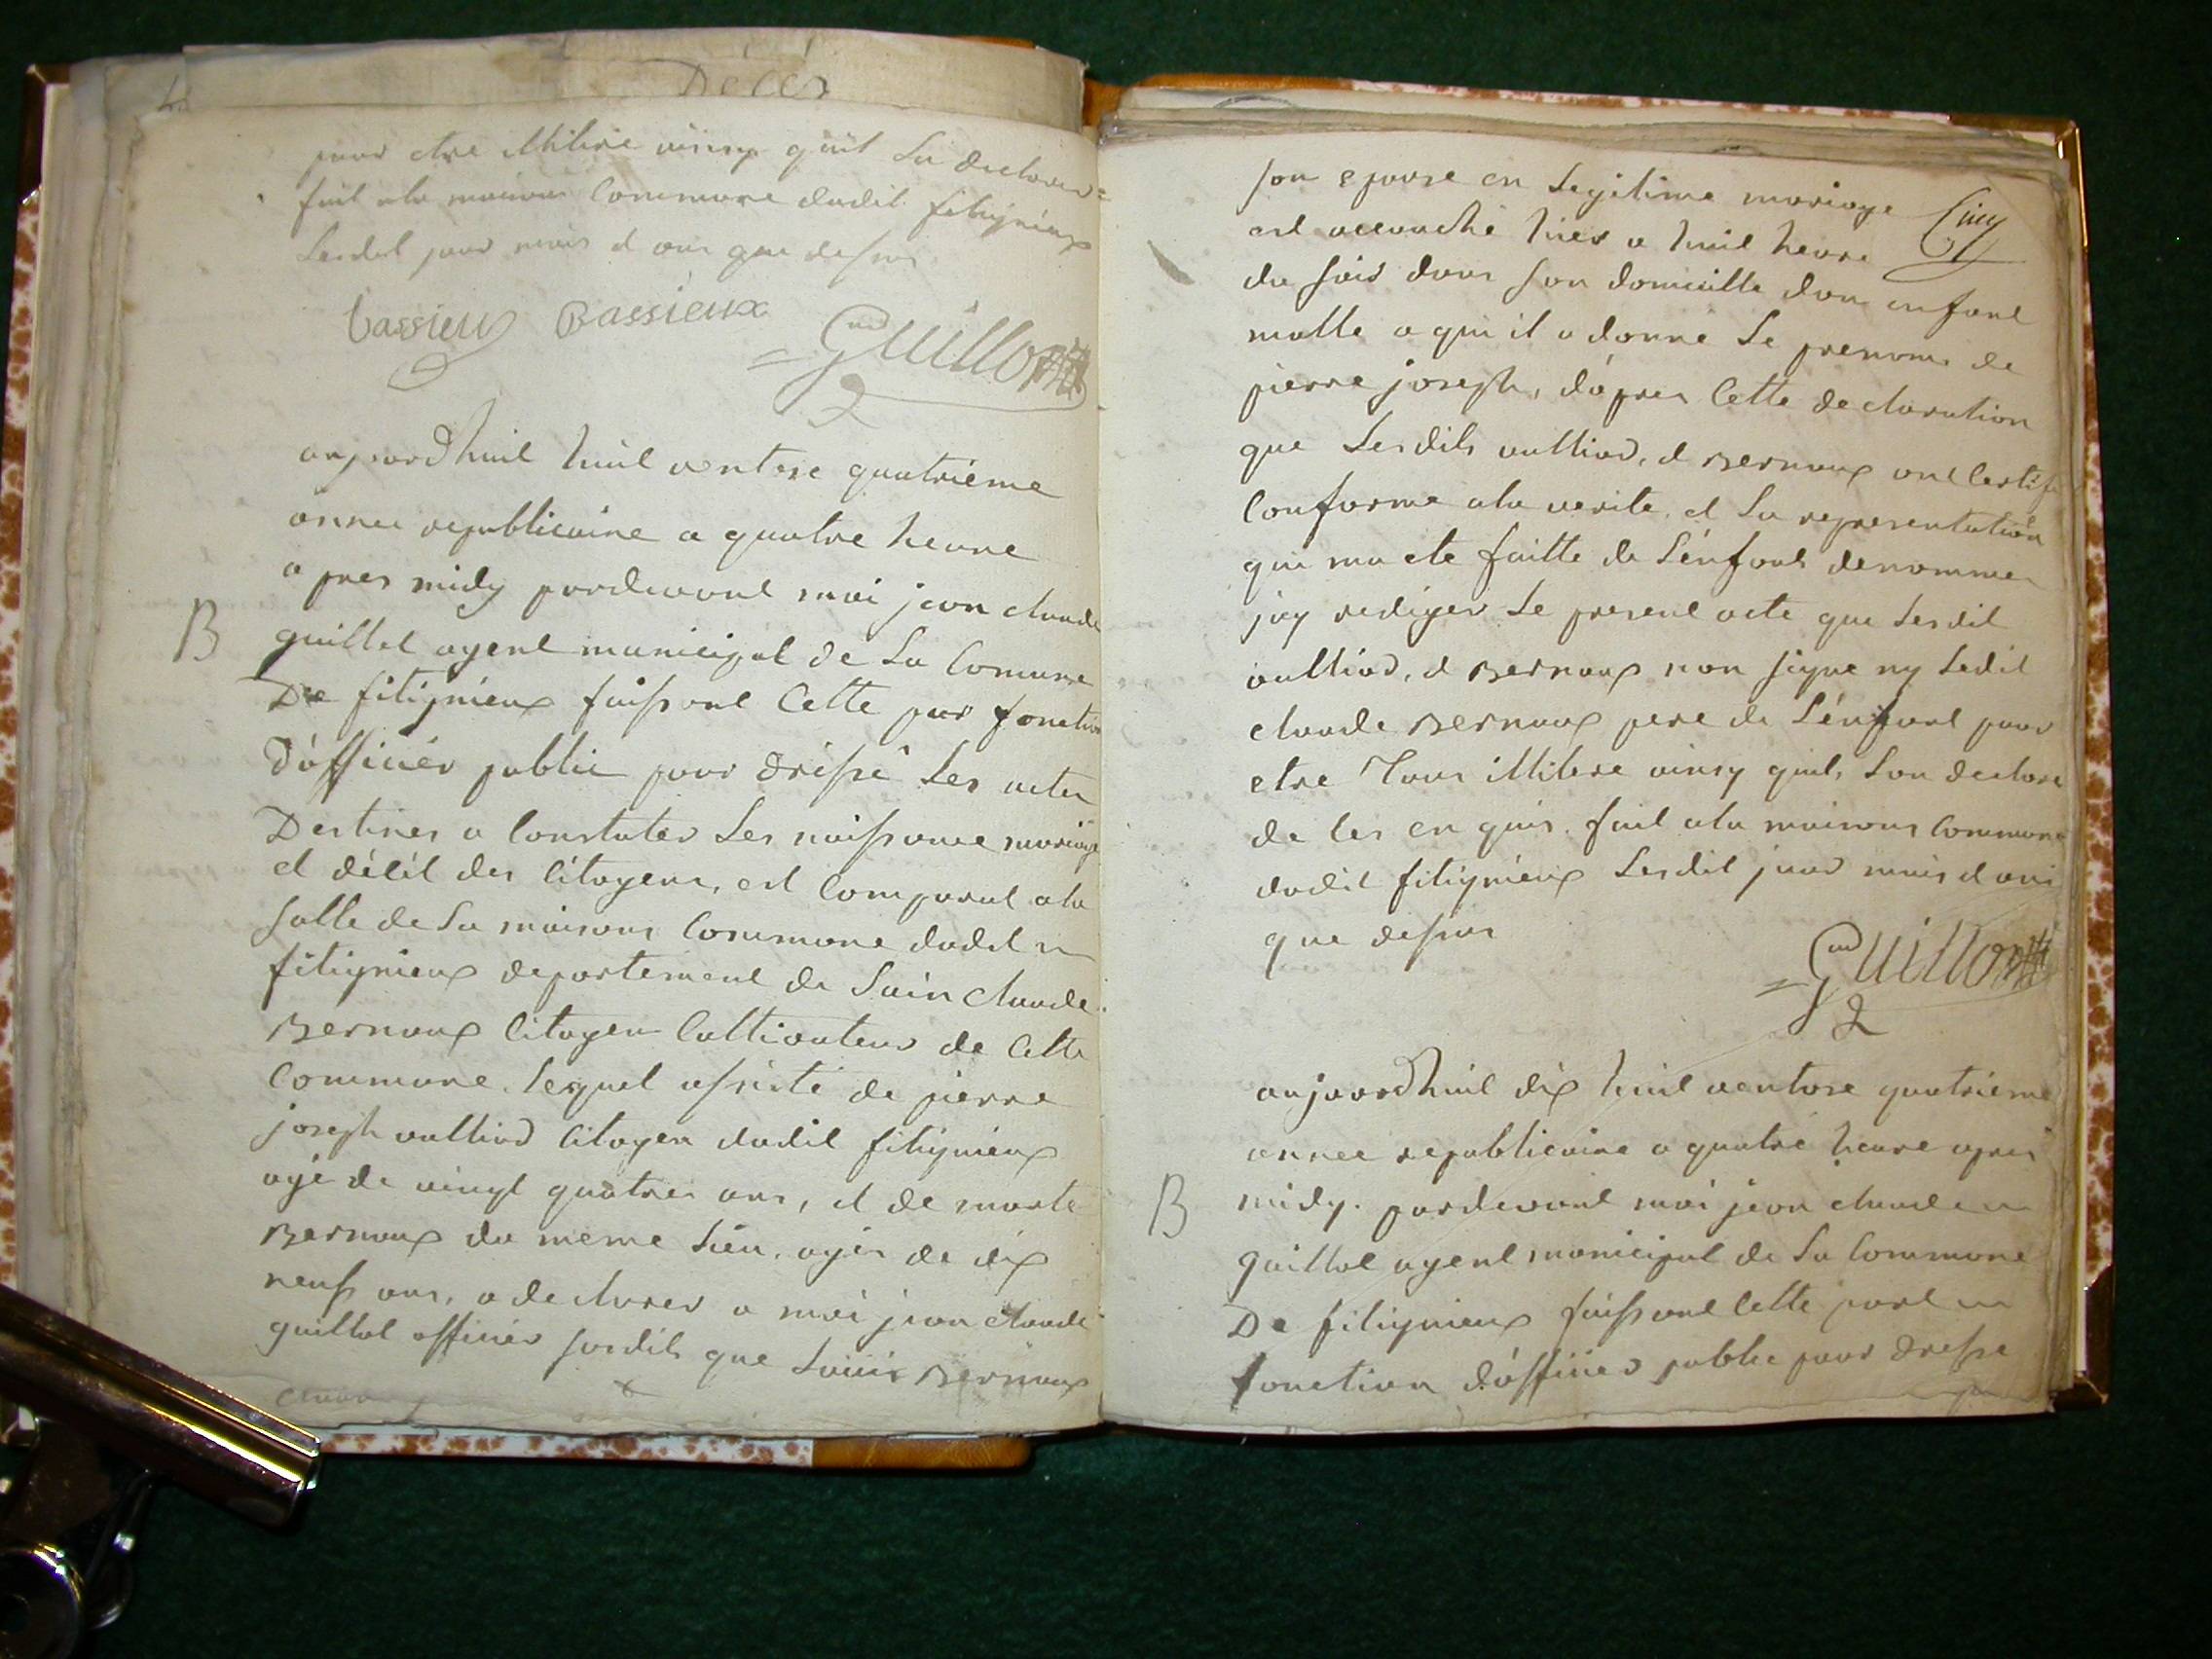 Décés
pour etre illitire ainsy quil la declare
fait ala maison Commune dudit fitignieux
Lesdit jour mois et ans que dessus
bassieux Bassieux Guillot
aujourdhuit huit ventose quatrieme
annee republicaine a quatre heure
apres midy pardevant moi jean claude
B
guillot agent municipal de La Comune
De fitignieux faissant Cette par fonction
D'officiér public pour dréssé Les actes
Destines a Constater Les naissance mariage
et décét des Citoyens, est Comparut ala
salle de La maisons Commune dudit
fitignieux departement de Lain claude
Bernoux Citoyen Cultivateur de Cette
Commune. Lequel assisté de pierre
joseph vulliod Citoyen dudit fitignieux
agé de vingt quatres ans, et de marte
Bernoux du meme Lieu. agés de dix
neufs ans, a declarer a moi jean claude
guillot officier susdits que Bernoux
son epouse en Legitime mariage
Cinq
est accouché hier a huit heure
du soir dans son domicille don enfant
malle a qui il a donné Le prenoms de
pierre joseph, d'apres Cette declaration
que Lesdits vulliod, et Bernoux ont Certifie
Conforme ala verite. et La representation
qui ma ete faitte de L'énfant denommer
jay rediger Le present acte que Lesdit
vulliod, et Bernoux non signe ny Ledit
claude Bernoux pere de L'énfant pour
etre Tous illitere ainsy quils Lon declare
de Les en quis. fait ala maisons Commune
dudit fitignieux Lesdit jour mois et ans
que dessus
Guillot
aujourdhuit dix huit ventose quatrieme
annee republicaine a quatre heure apres
B
midy. pardevant moi jean claude
guillot agent municipal de La Commune
De fitignieux faissant Cette part
fonction d'officier public pour dresse